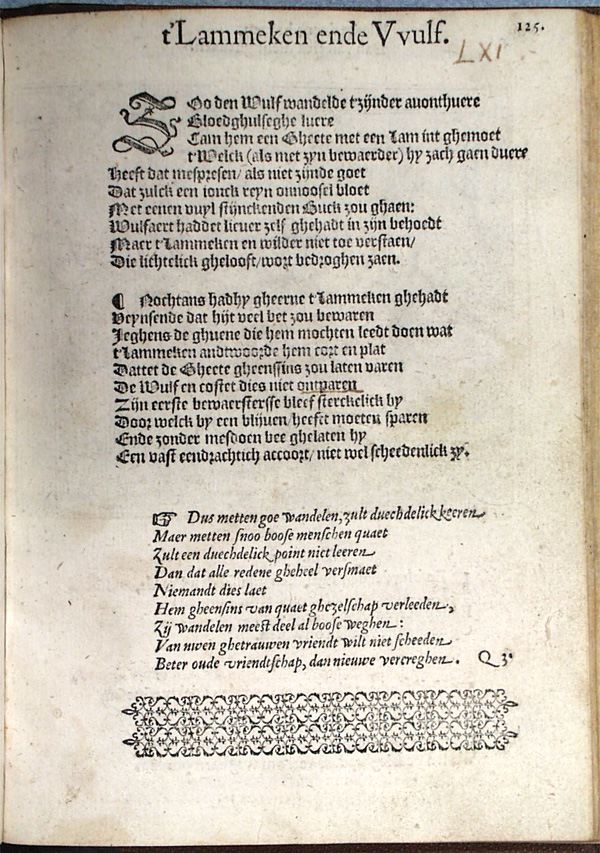 t'Lammeken ende VVulf.
125.
LXI
SOo den Wulf wandelde t'zijnder auonthuere
Bloedghulseghe luere
Cam hem een Gheete met een Lam int ghemoet
t'Welck (als met zyn bewaerder) hy zach gaen duere
Heeft dat mespresen/ als niet zijnde goet
Dat zulck een ionck reyn onnoosel bloet
Met eenen vuyl stijnckenden Buck zou ghaen:
Wulfaert haddet liever zelf ghehadt in zijn behoedt
Maer t'Lammeken en wilder niet toe verstaen/
Die lichtelick ghelooft/ wort bedroghen zaen.
¶ Nochtans hadhy gheerne t'Lammeken ghehadt
Veynsende dat hijt veel bet zou bewaren
Jeghens de ghuene die hem mochten leedt doen wat
t'Lammeken andtwoorde hem cort en plat
Dattet de Gheete gheenssins zou laten varen
De Wulf en costet dies niet ontparen
Zijn eerste bewaerstersse bleef sterckelick by
Door welck by een blijuen/ heeft moeten sparen
Ende zonder mesdoen bee ghelaten hy
Een vast eendrachtich accoort/ niet wel scheedenlick zy.
☞ Dus metten goe wandelen, zult duechdelick keeren
Maer metten snoo boose menschen quaet
Zult een duechdelick point niet leeren
Dan dat alle redene gheheel versmaet
Niemandt dies laet
Hem gheensins van quaet ghezelschap verleeden,
Zij wandelen meest deel al boose weghen:
Van uwen ghetrauwen vriendt wilt niet scheeden
Beter oude vriendtschap, dan nieuwe vercreghen.
Q 3.